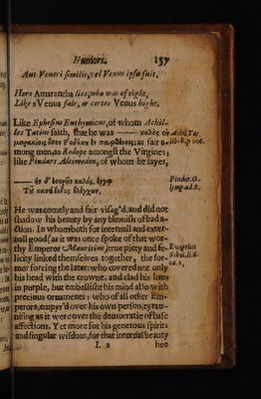 Humors.
157
Aut Veneri similis, vel Venus ipsa fuit,
Here Amarancha lies, who was of right,
Like a Venus fair, or certes Venus hight,
Like Ephesius Euthymicus, of whom Achil-
les Tatius saith, that he was —— καλὸς
μειράκιον ὅσον Ῥοδόπη ἐν παρθένοις as fair a-
mong men, as Rodope amongst the Virgins;
like Pindars Alcimedon, of whom he sayes,
Achil. Tat.
lib. 8. p.
—— ἦν δ' ἐσορᾶν καλός, ἔργῳ
Τ' οὐ κατὰ εἶδος ἐλέγχων.
Pindar. O-
lymp. od. 8.
He was comely and fair visag'd, and did not
shadow his beauty by any blemish of bad a-
ction. In whom both for internall and exter-
nall good (as it was once spoke of that wor-
thy Emperor Mauritius) true piety and fe-
licity linked themselves together, the for-
mer forcing the later: who covered not only
his head with the crowne, and clad his lims
in purple, but embellisht his mind also with
precious ornaments: who of all other Em-
perors, empyr'd over his own person, tyran-
nising as it were over the democratie of base
affections. Yet more for his generous spirits
and singular wisdom, for that internal beauty
Euagrius
Schol. li. 6.
ca. 1.
L 2
heo